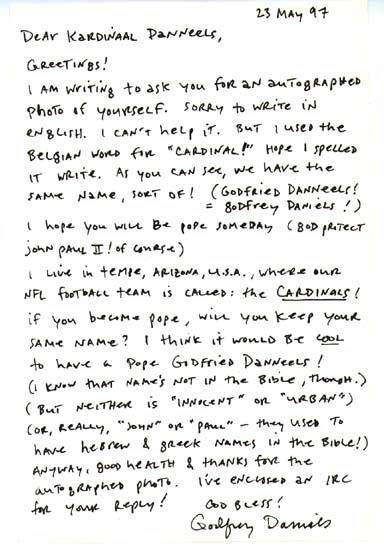 23 May 97
Dear Kardinaal Danneels,
Greetings!
I am writing to ask you for an autographed
photo of yourself. Sorry to write in
English. I can't help it. But I used the
Belgian word for "Cardinal!" Hope I spelled
it write. As you can see, we have the
same name, sort of! (Godfried Danneels!
= Godfrey Daniels!)
I hope you will be pope someday (God protect
John Paul II! of course)
I live in Tempe, Arizona, U.S.A., where our
NFL football team is called: the CARDINALS!
If you become pope, will you keep your
same name? I think it would be cool
to have a Pope Godfried Danneels!
(I know that name's not in the Bible, though.)
(But neither is "Innocent" or "Urban")
(Or, really, "John" or "Paul" – they used to
have Hebrew & Greek names in the Bible!)
Anyway, good health & thanks for the
autographed photo. I've enclosed an IRC
for your reply! God bless!
Godfrey Daniels